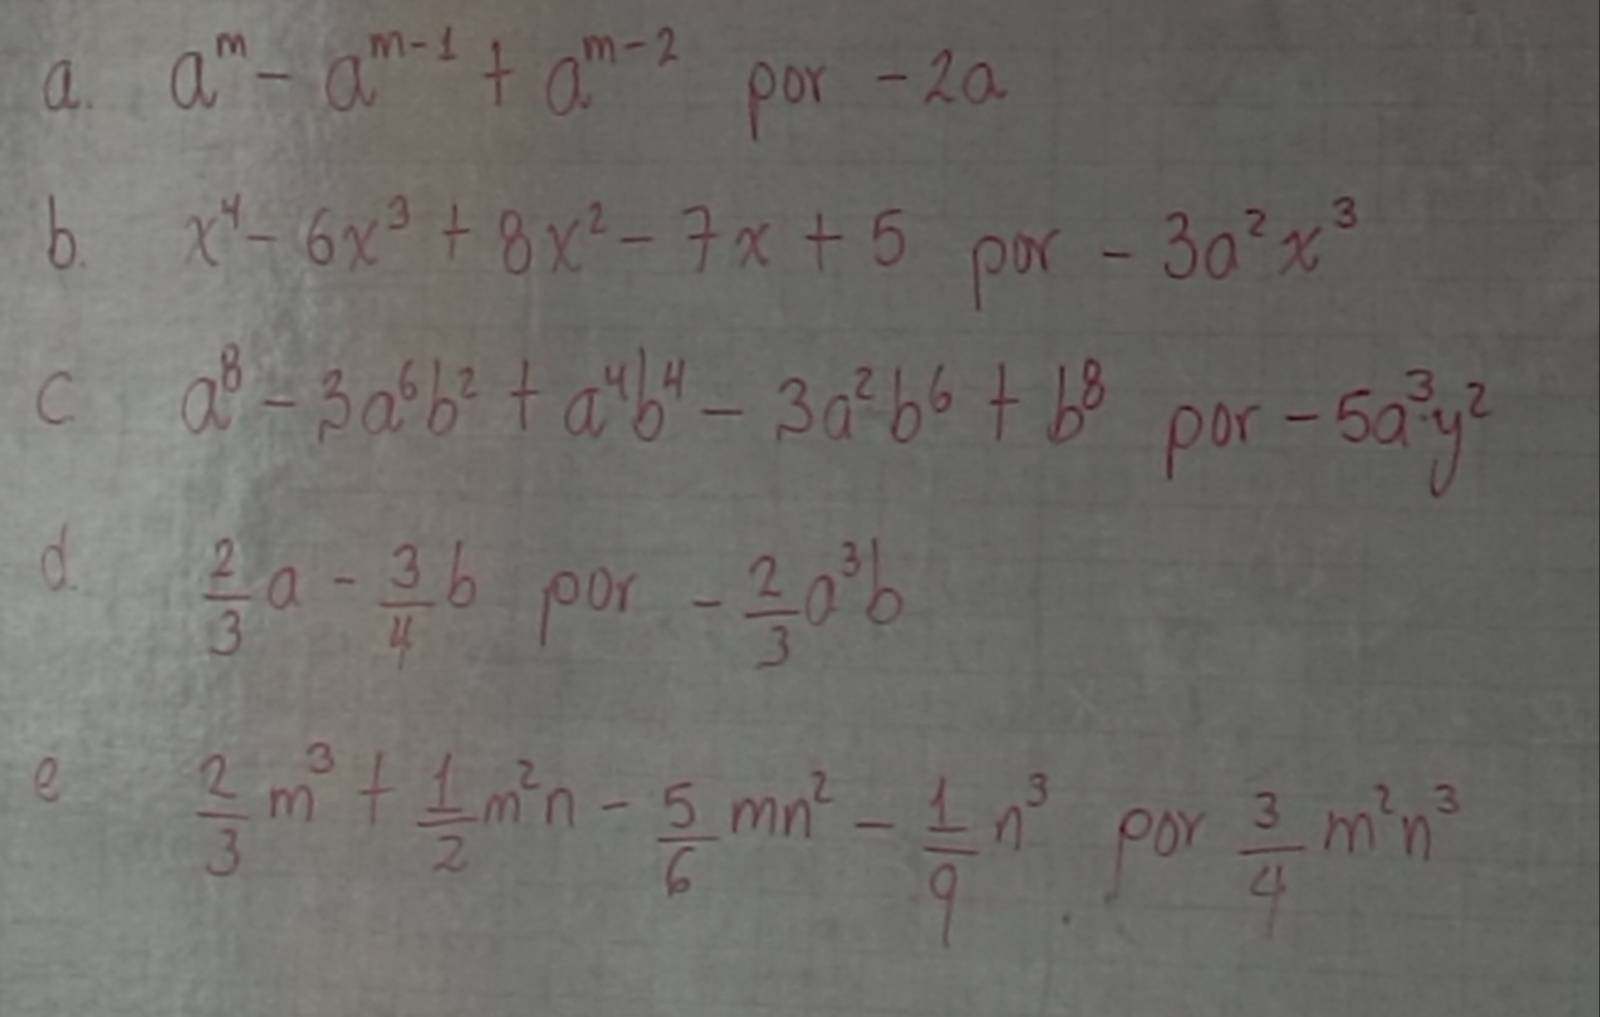 a. a^m - a^{m-1} + a^{m-2} por -2a
b. x^4 - 6x^3 + 8x^2 - 7x + 5 por -3a^2x^3
c a^8 - 3a^6b^2 + a^4b^4 - 3a^2b^6 + b^8 por -5a^3y^2
d. \frac{2}{3}a - \frac{3}{4}b por -\frac{2}{3}a^3b
e \frac{2}{3}m^3 + \frac{1}{2}m^2n - \frac{5}{6}mn^2 - \frac{1}{9}n^3 por \frac{3}{4}m^2n^3